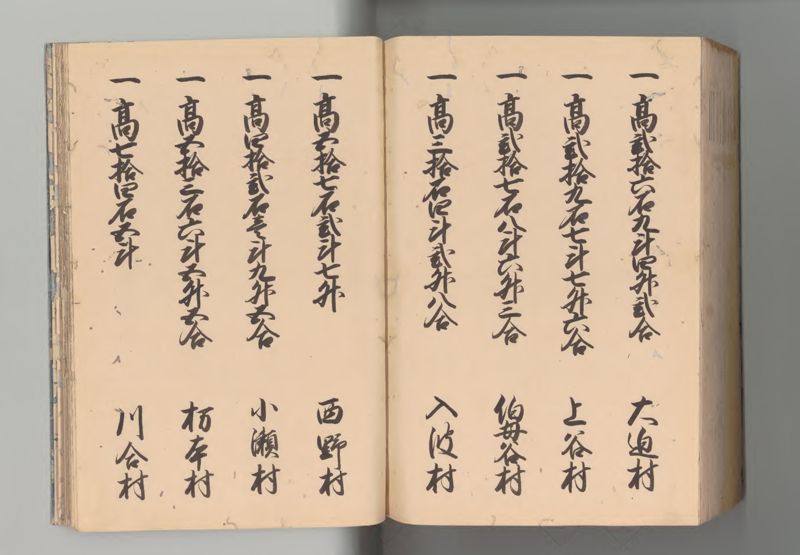 一 高弐拾六石九斗四升弐合 大迫村
一 高弐拾九石七斗七升六合 上谷村
一 高弐拾七石八斗六升三合 伯母谷村
一 高三拾石四斗弐升八合 入波村
一 高五拾七石弐斗七升 西野村
一 高四拾弐石壱斗九升五合 小瀬村
一 高五拾三石六斗五升五合 杤本村
一 高七拾四石五斗 川合村